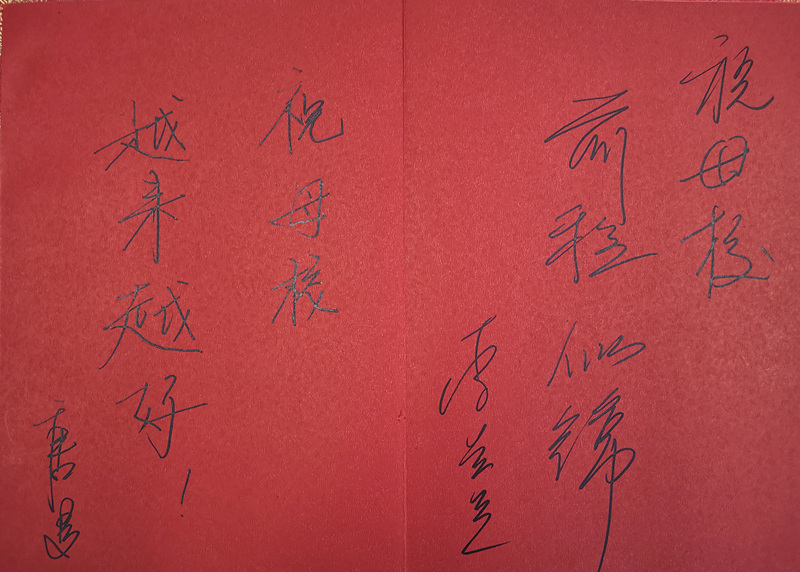 祝母校
前程似锦
祝母校
越来越好！